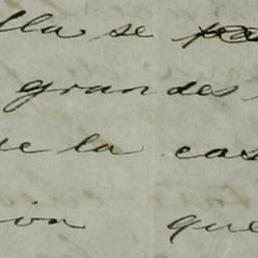 lla se
grandes
se la cas
ion que